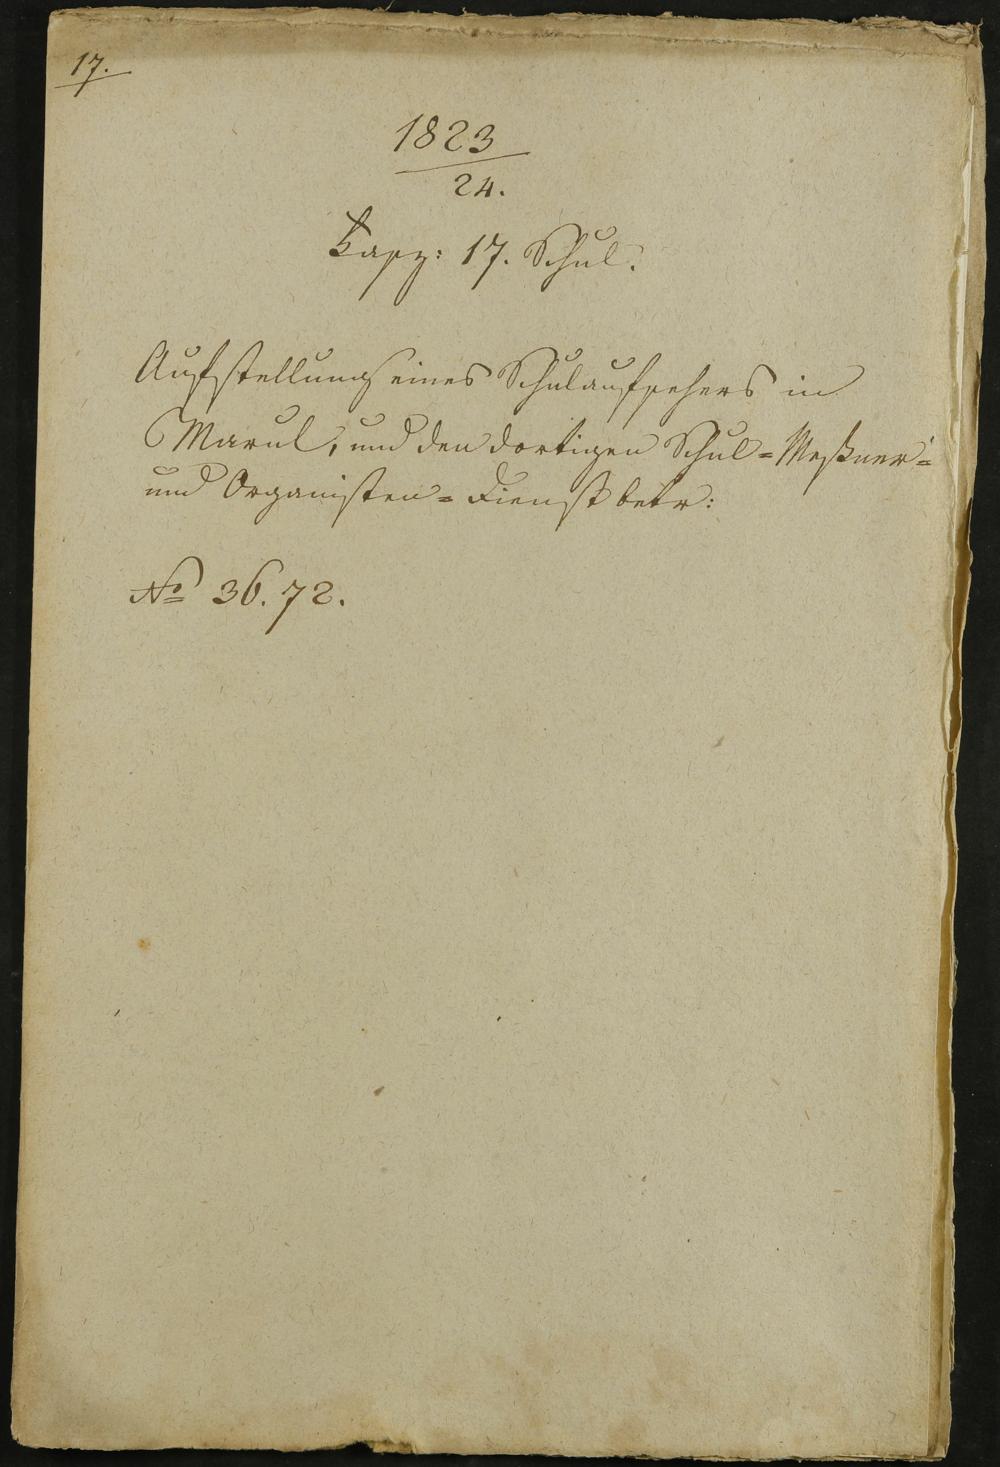 17.
1823
24.
Fasz: 17. Schul.
Aufstellung eines Schulaufsehers in
Marul, und den dortigen Schul= Meßner=
und Organisten= Dienst betr:
No 36. 72.